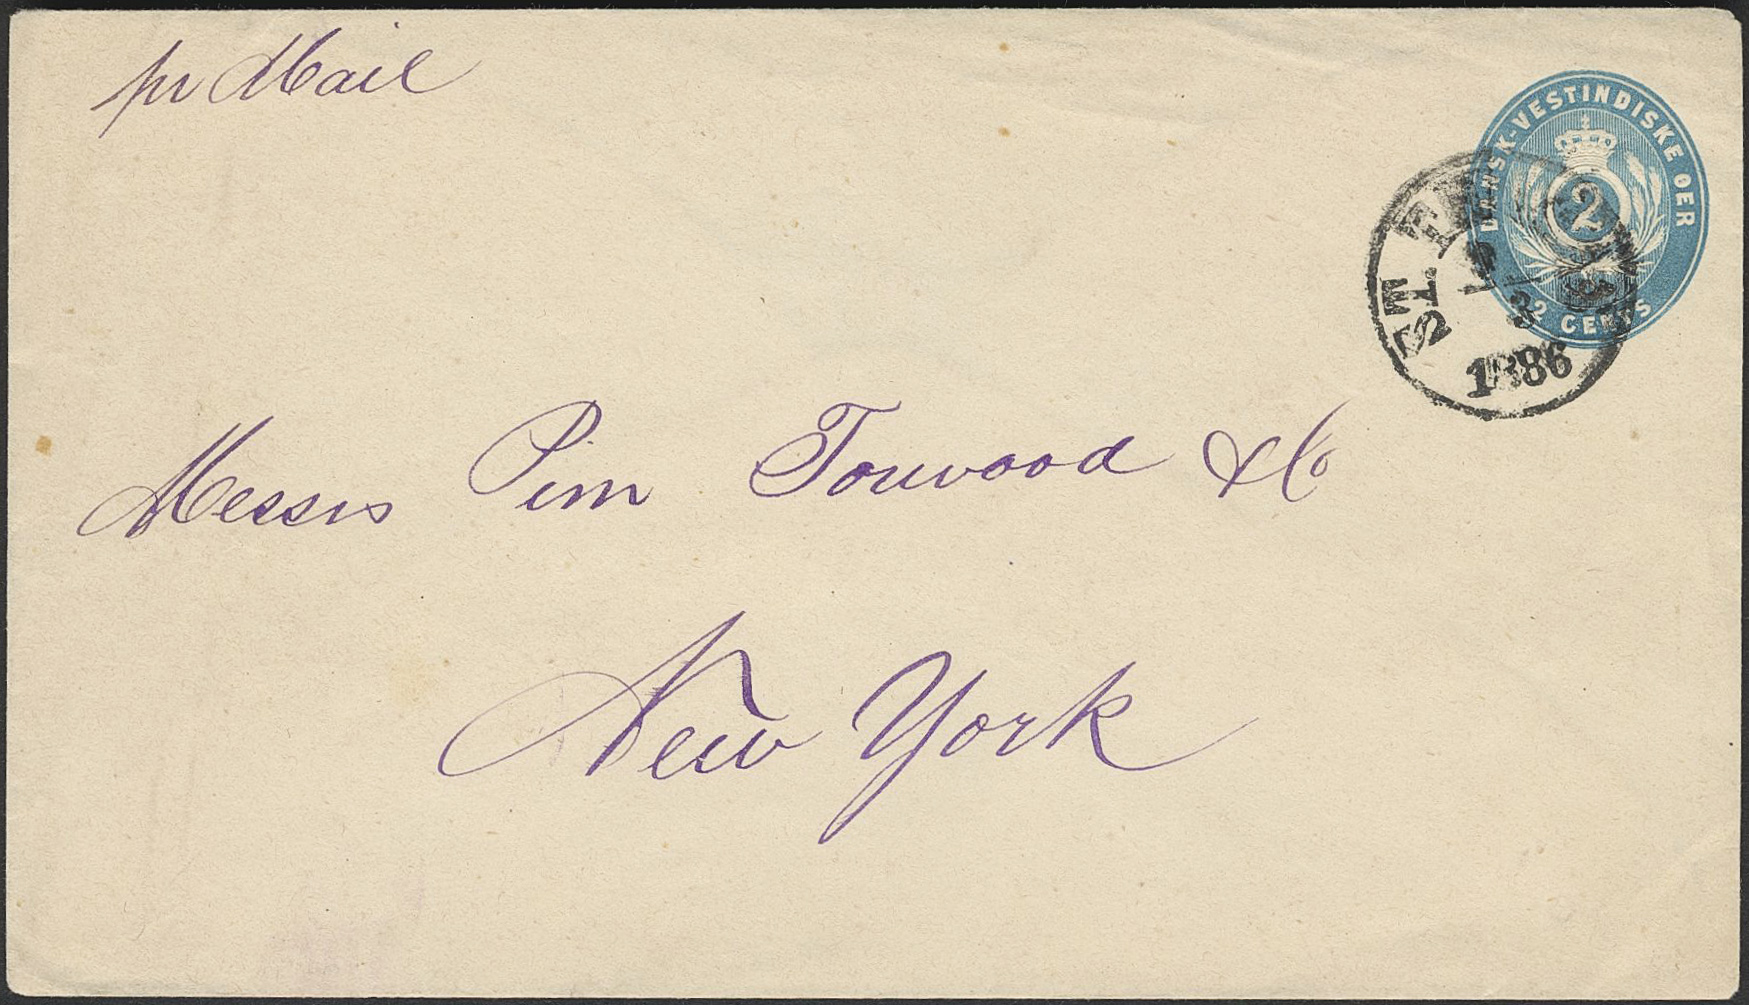 pr Mail
DANSK-VESTINDISKE OER
2
2 CENTS
ST. THOMAS
3
1886
Messrs Pim Forwood & Co
New York